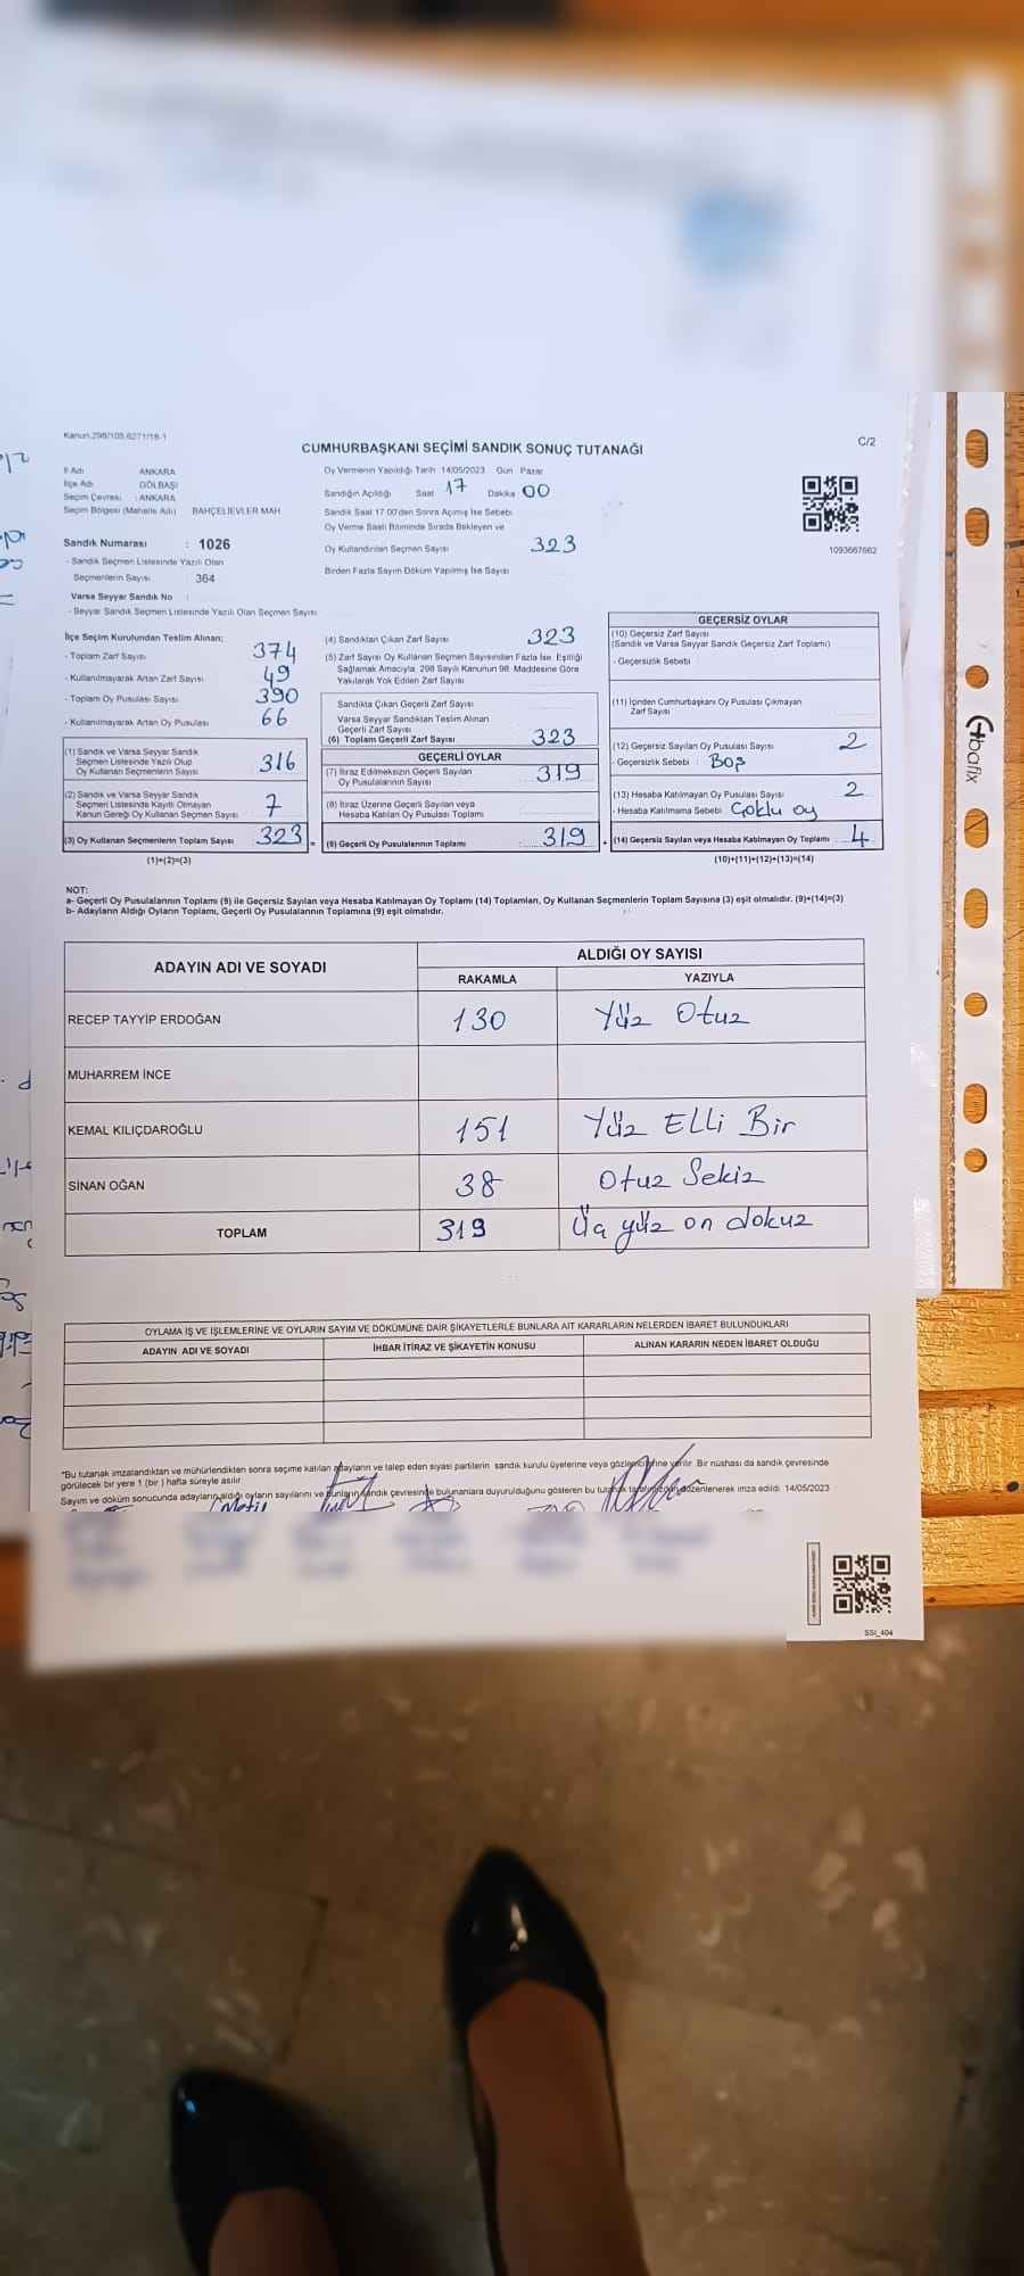 Kanun.298/105,6271/18-1
CUMHURBAŞKANI SEÇİMİ SANDIK SONUÇ TUTANAĞI
C/2
İl Adı ANKARA
İlçe Adı GÖLBAŞI
Seçim Çevresi : ANKARA
Seçim Bölgesi (Mahalle Adı) BAHÇELİEVLER MAH
Oy Vermenin Yapıldığı Tarih 14/05/2023 Gün Pazar
Sandığın Açıldığı Saat 17 Dakika 00
Sandık Saat 17.00'den Sonra Açılmış İse Sebebi
Oy Verme Saati Bitiminde Sırada Bekleyen ve
Oy Kullandırılan Seçmen Sayısı 323
Birden Fazla Sayım Döküm Yapılmış İse Sayısı
1093667662
Sandık Numarası : 1026
- Sandık Seçmen Listesinde Yazılı Olan
Seçmenlerin Sayısı 364
Varsa Seyyar Sandık No :
- Seyyar Sandık Seçmen Listesinde Yazılı Olan Seçmen Sayısı
İlçe Seçim Kurulundan Teslim Alınan;
- Toplam Zarf Sayısı 374
- Kullanılmayarak Artan Zarf Sayısı 49
- Toplam Oy Pusulası Sayısı 390
- Kullanılmayarak Artan Oy Pusulası 66
(1) Sandık ve Varsa Seyyar Sandık
Seçmen Listesinde Yazılı Olup
Oy Kullanan Seçmenlerin Sayısı 316
(2) Sandık ve Varsa Seyyar Sandık
Seçmen Listesinde Kayıtlı Olmayan
Kanun Gereği Oy Kullanan Seçmen Sayısı 7
(3) Oy Kullanan Seçmenlerin Toplam Sayısı 323 =
(1)+(2)=(3)
(4) Sandıktan Çıkan Zarf Sayısı 323
(5) Zarf Sayısı Oy Kullanan Seçmen Sayısından Fazla İse, Eşitliği
Sağlamak Amacıyla, 298 Sayılı Kanunun 98. Maddesine Göre
Yakılarak Yok Edilen Zarf Sayısı
Sandıkta Çıkan Geçerli Zarf Sayısı
Varsa Seyyar Sandıktan Teslim Alınan
Geçerli Zarf Sayısı
(6) Toplam Geçerli Zarf Sayısı 323
GEÇERLİ OYLAR
(7) İtiraz Edilmeksizin Geçerli Sayılan
Oy Pusulalarının Sayısı 319
(8) İtiraz Üzerine Geçerli Sayılan veya
Hesaba Katılan Oy Pusulası Toplamı
(9) Geçerli Oy Pusulalarının Toplamı 319 +
GEÇERSİZ OYLAR
(10) Geçersiz Zarf Sayısı
(Sandık ve Varsa Sayyar Sandık Geçersiz Zarf Toplamı)
- Geçersizlik Sebebi
(11) İçinden Cumhurbaşkanı Oy Pusulası Çıkmayan
Zarf Sayısı
(12) Geçersiz Sayılan Oy Pusulası Sayısı 2
- Geçersizlik Sebebi : Boş
(13) Hesaba Katılmayan Oy Pusulası Sayısı 2
- Hesaba Katılmama Sebebi Çoklu oy
(14) Geçersiz Sayılan veya Hesaba Katılmayan Oy Toplamı 4
(10)+(11)+(12)+(13)=(14)
NOT:
a- Geçerli Oy Pusulalarının Toplamı (9) ile Geçersiz Sayılan veya Hesaba Katılmayan Oy Toplamı (14) Toplamları, Oy Kullanan Seçmenlerin Toplam Sayısına (3) eşit olmalıdır. (9)+(14)=(3)
b- Adayların Aldığı Oyların Toplamı, Geçerli Oy Pusulalarının Toplamına (9) eşit olmalıdır.
ADAYIN ADI VE SOYADI
ALDIĞI OY SAYISI
RAKAMLA YAZIYLA
RECEP TAYYİP ERDOĞAN 130 Yüz Otuz
MUHARREM İNCE
KEMAL KILIÇDAROĞLU 151 Yüz Elli Bir
SİNAN OĞAN 38 Otuz Sekiz
TOPLAM 319 Üç yüz on dokuz
OYLAMA İŞ VE İŞLEMLERİNE VE OYLARIN SAYIM VE DÖKÜMÜNE DAİR ŞİKAYETLERLE BUNLARA AİT KARARLARIN NELERDEN İBARET BULUNDUKLARI
ADAYIN ADI VE SOYADI İHBAR İTİRAZ VE ŞİKAYETİN KONUSU ALINAN KARARIN NEDEN İBARET OLDUĞU
*Bu tutanak imzalandıktan ve mühürlendikten sonra seçime katılan adayların ve talep eden siyasi partilerin sandık kurulu üyelerine veya gözlemcilerine verilir. Bir nüshası da sandık çevresinde
görülecek bir yere 1 (bir ) hafta süreyle asılır
Sayım ve döküm sonucunda adayların aldığı oyların sayılarını ve bunların sandık çevresinde bulunanlara duyurulduğunu gösteren bu tutanak tarafımızdan düzenlenerek imza edildi. 14/05/2023
SSI_404
bafix